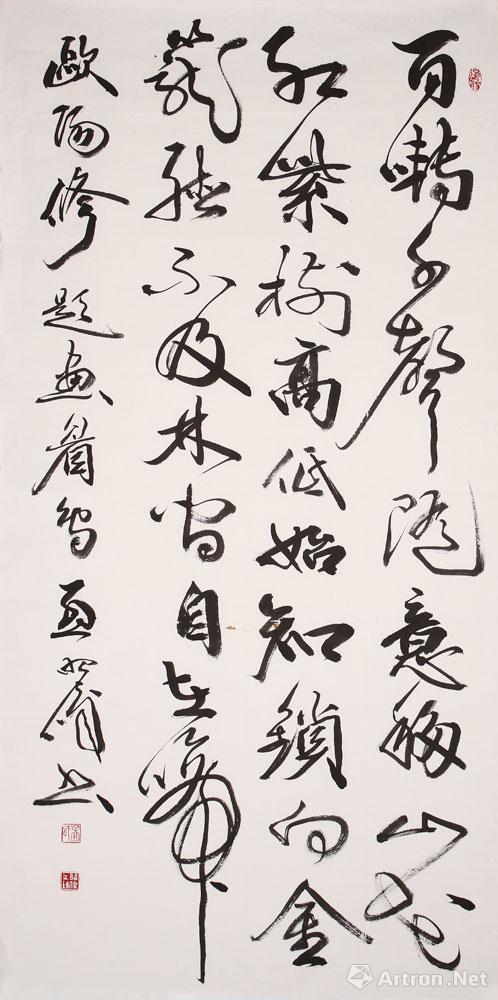 百囀千聲隨意移山花
紅紫樹高低始知鎖向金
籠聽不及林間自在啼
歐陽修題畫眉鳥 書
Artron.Net